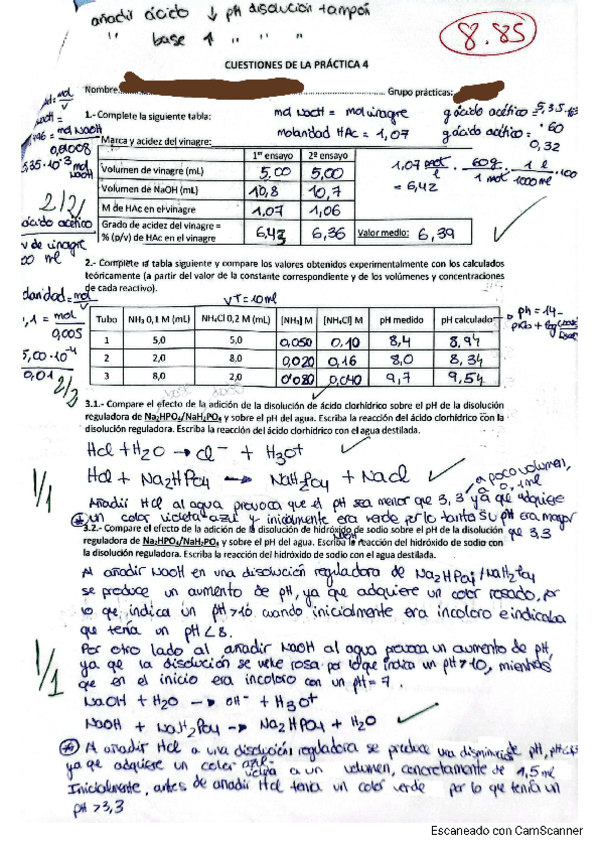 añadir ácido ↓ pH disolución tampón
" base ↑ " " "
8.85
CUESTIONES DE LA PRÁCTICA 4
Nombre: Grupo prácticas:
1.- Complete la siguiente tabla:
mol NaOH = mol vinagre
molaridad HAc = 1,07
g ácido acético = 5,35·
g ácido acético = · 60
0,32
= mol NaOH
0,0008
5,35·10⁻³ mol NaOH
2/2
ácido acético
v de vinagre
Marca y acidez del vinagre:
1er ensayo 2º ensayo
Volumen de vinagre (mL) 5,00 5,00
Volumen de NaOH (mL) 10,8 10,7
M de HAc en el vinagre 1,07 1,06
Grado de acidez del vinagre = % (p/v) de HAc en el vinagre 6,43 6,36 Valor medio: 6,39
1,07 mol/l · 60g/1 mol · 1 l/1000 ml · 100
= 6,42
2.- Complete la tabla siguiente y compare los valores obtenidos experimentalmente con los calculados
teóricamente (a partir del valor de la constante correspondiente y de los volúmenes y concentraciones
de cada reactivo).
VT = 10 ml
= mol/v
,1 = mol
0,005
5,00·10⁻⁴
0,01
2/2
Tubo NH₃ 0,1 M (mL) NH₄Cl 0,2 M (mL) [NH₃] M [NH₄Cl] M pH medido pH calculado
pH = 14-
1 5,0 5,0 0,050 0,10 8,4 8,94
2 2,0 8,0 0,020 0,16 8,0 8,34
3 8,0 2,0 0,080 0,040 9,7 9,54
base
3.1.- Compare el efecto de la adición de la disolución de ácido clorhídrico sobre el pH de la disolución
reguladora de Na₂HPO₄/NaH₂PO₄ y sobre el pH del agua. Escriba la reacción del ácido clorhídrico con la
disolución reguladora. Escriba la reacción del ácido clorhídrico con el agua destilada.
HCl + H₂O → Cl⁻ + H₃O⁺
HCl + Na₂HPO₄ → NaH₂PO₄ + NaCl
a poco volumen,
0,1 ml
1/1
Añadir HCl al agua provoca que el pH sea menor que 3,3 ya que adquiere
un color violeta azul y inicialmente era verde por lo tanto su pH era mayor
que 3,3
3.2.- Compare el efecto de la adición de la disolución de hidróxido de sodio sobre el pH de la disolución
reguladora de Na₂HPO₄/NaH₂PO₄ y sobre el pH del agua. Escriba la reacción del hidróxido de sodio con
la disolución reguladora. Escriba la reacción del hidróxido de sodio con el agua destilada.
Al añadir NaOH en una disolución reguladora de Na₂HPO₄/NaH₂PO₄
se produce un aumento de pH, ya que adquiere un color rosado, por
lo que indica un pH>10 cuando inicialmente era incoloro e indicaba
que tenía un pH<8.
Por otro lado al añadir NaOH al agua provoca un aumento de pH,
ya que la disolución se vuelve rosa por lo que indica un pH>10, mientras
que en el inicio era incoloro con un pH = 7.
1/1
NaOH + H₂O → OH⁻ + H₃O⁺
NaOH + NaH₂PO₄ → Na₂HPO₄ + H₂O
Al añadir HCl a una disolución reguladora se produce una disminución de pH,
ya que adquiere un color azul-violeta a un volumen, concretamente de 1,5 ml
Inicialmente, antes de añadir HCl tenía un color verde por lo que tenía un
pH >3,3
Escaneado con CamScanner